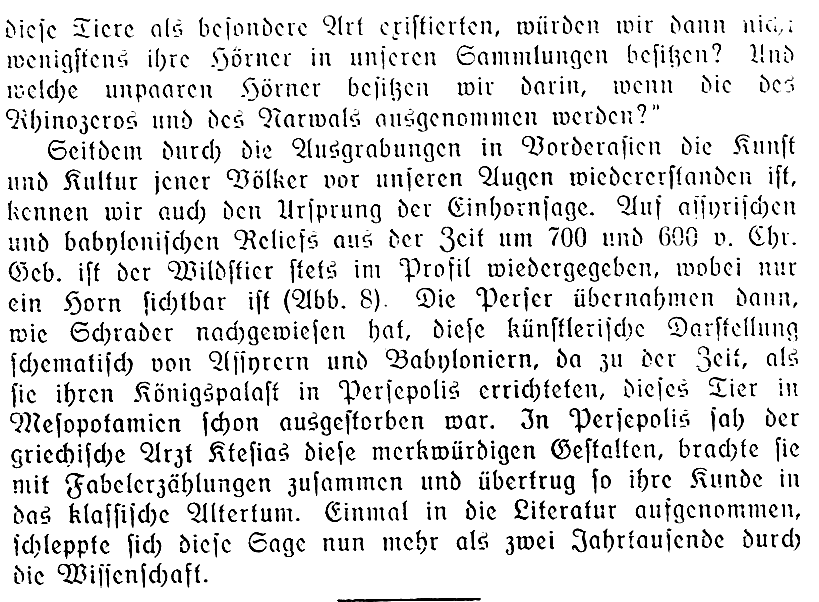 diese Tiere als besondere Art existierten, würden wir dann nicht
wenigstens ihre Hörner in unseren Sammlungen besitzen? Und
welche unpaaren Hörner besitzen wir darin, wenn die des
Rhinozeros und des Narwals ausgenommen werden?"
Seitdem durch die Ausgrabungen in Vorderasien die Kunst
und Kultur jener Völker vor unseren Augen wiedererstanden ist,
kennen wir auch den Ursprung der Einhornsage. Auf assyrischen
und babylonischen Reliefs aus der Zeit um 700 und 600 v. Chr.
Geb. ist der Wildstier stets im Profil wiedergegeben, wobei nur
ein Horn sichtbar ist (Abb. 8). Die Perser übernahmen dann,
wie Schrader nachgewiesen hat, diese künstlerische Darstellung
schematisch von Assyrern und Babyloniern, da zu der Zeit, als
sie ihren Königspalast in Persepolis errichteten, dieses Tier in
Mesopotamien schon ausgestorben war. In Persepolis sah der
griechische Arzt Ktesias diese merkwürdigen Gestalten, brachte sie
mit Fabelerzählungen zusammen und übertrug so ihre Kunde in
das klassische Altertum. Einmal in die Literatur aufgenommen,
schleppte sich diese Sage nun mehr als zwei Jahrtausende durch
die Wissenschaft.